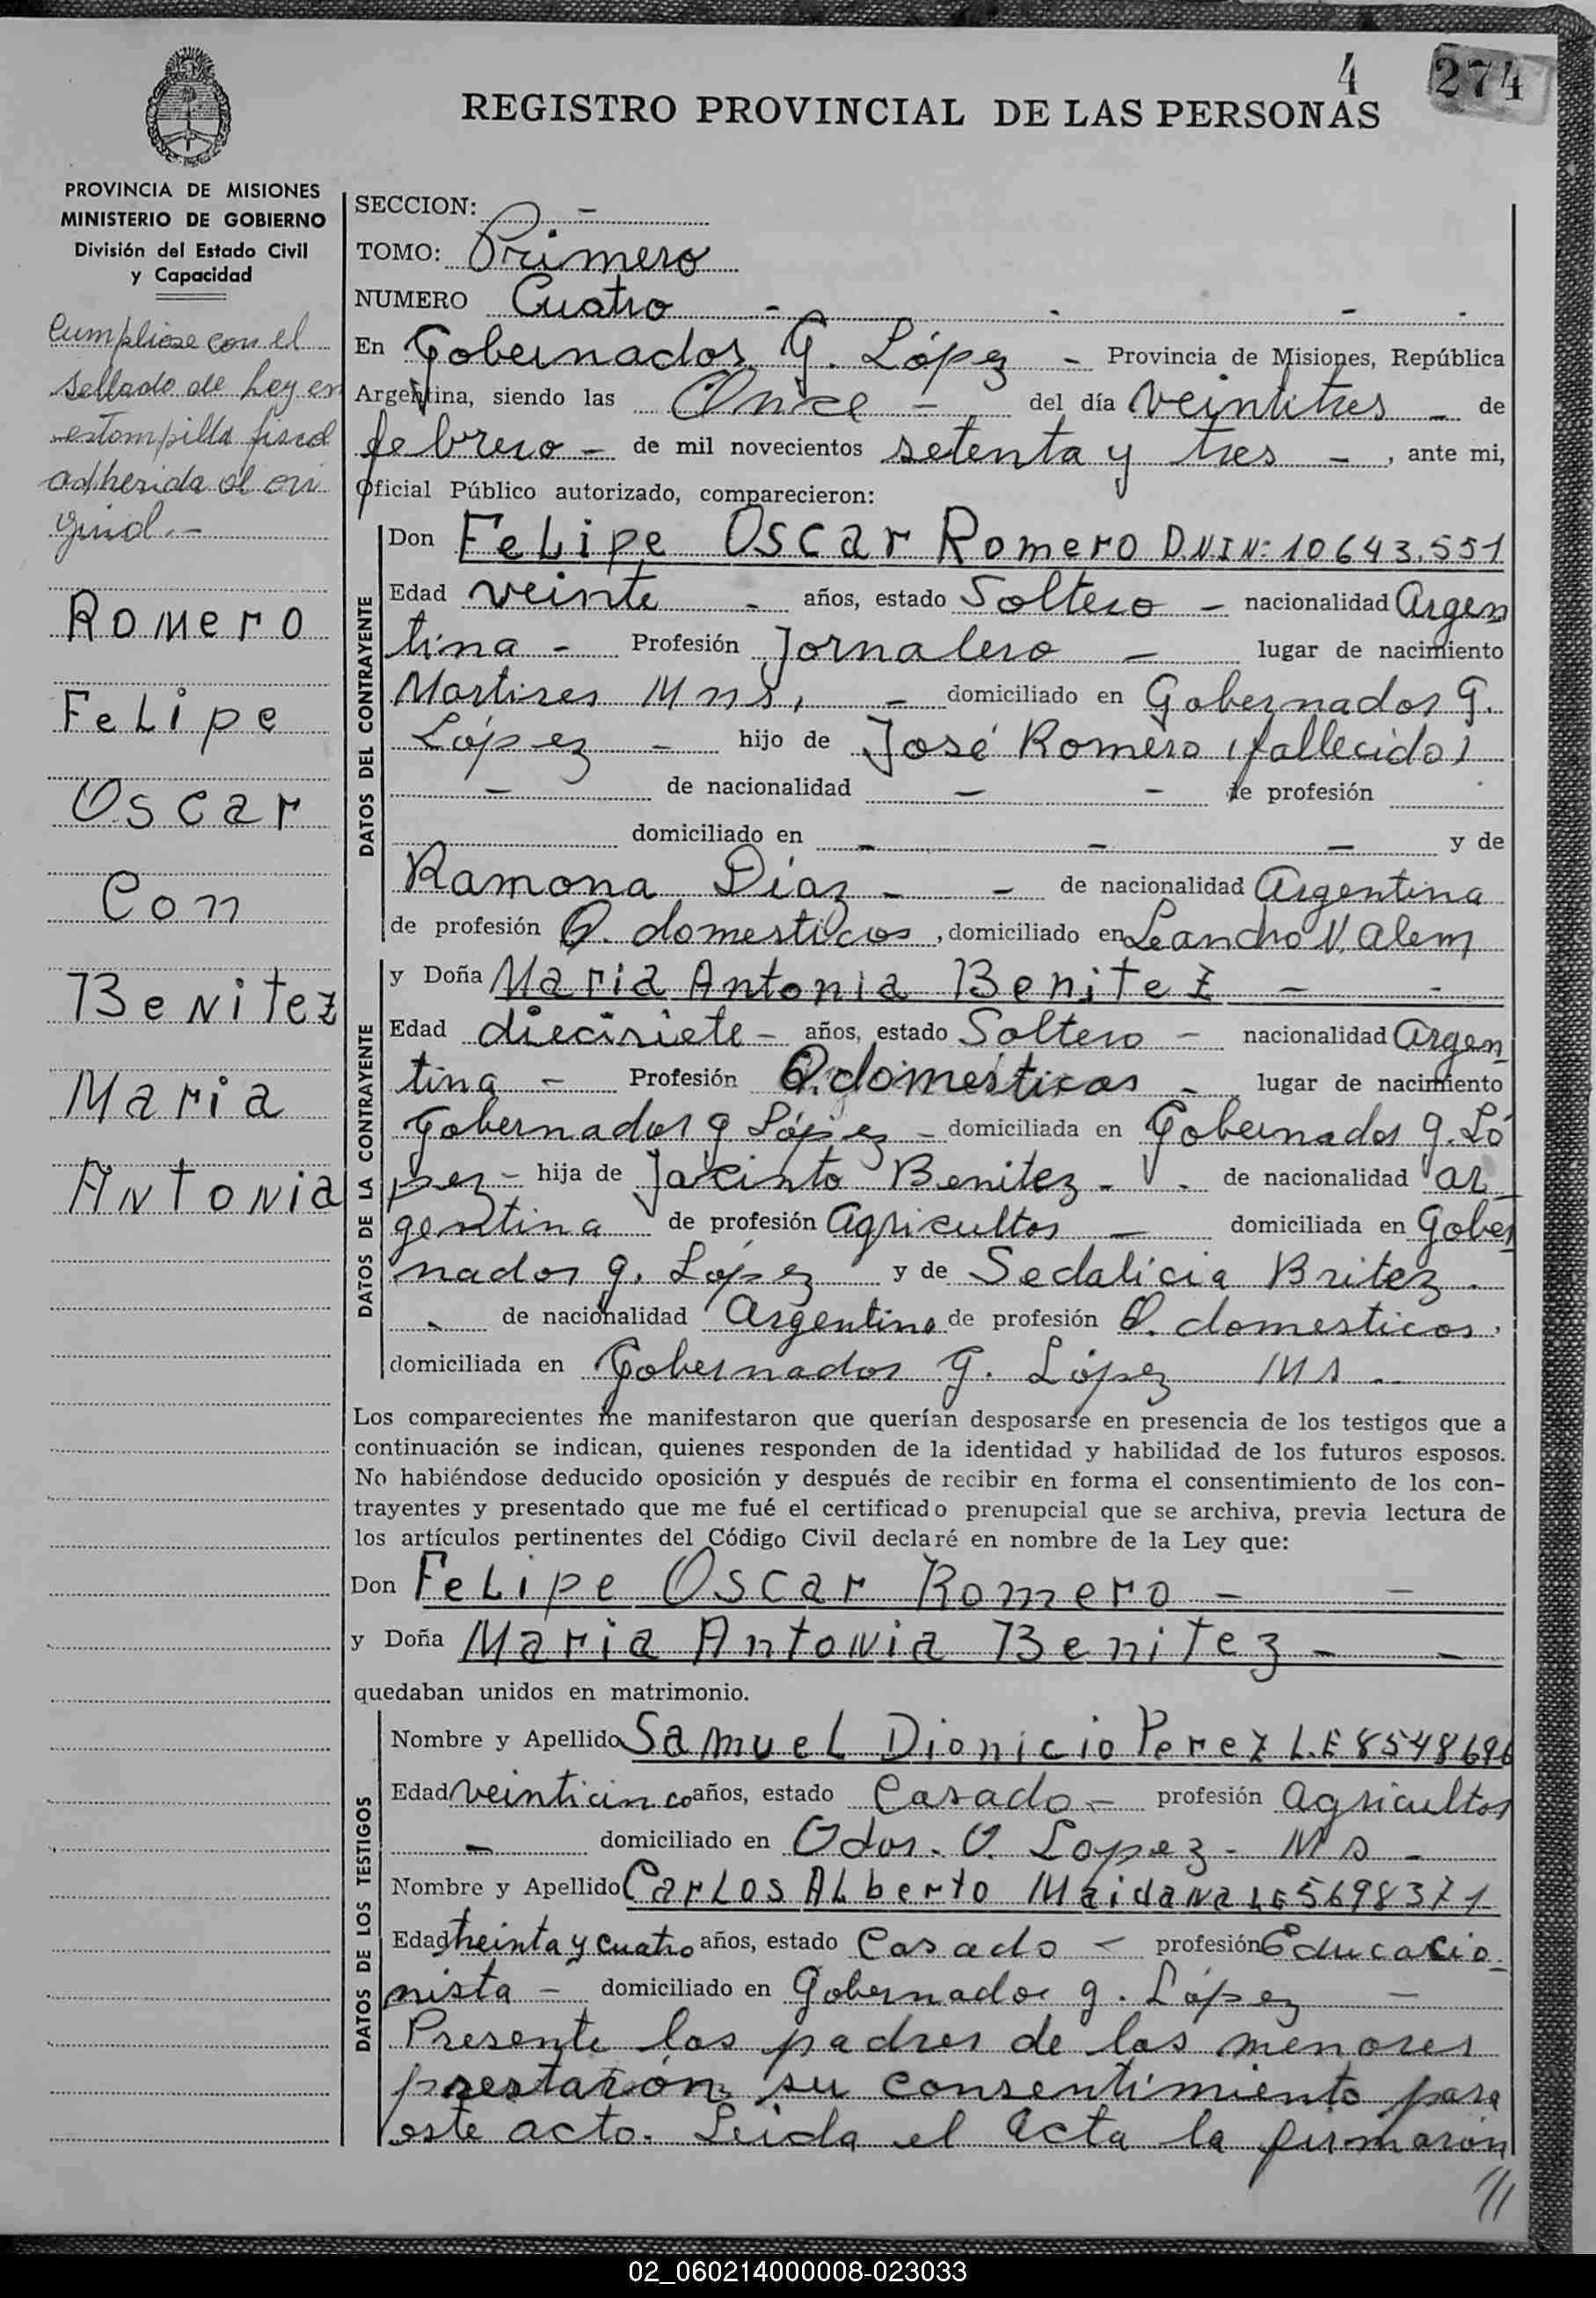 4 274
REGISTRO PROVINCIAL DE LAS PERSONAS
PROVINCIA DE MISIONES
MINISTERIO DE GOBIERNO
División del Estado Civil
y Capacidad
Cumpliose con el
sellado de Ley en
estampilla fiscal
adherida al ori
ginal.-
Romero
Felipe
Oscar
Con
Benitez
Maria
Antonia
SECCION: -
TOMO: Primero
NUMERO Cuatro - - - -
En Gobernador G. López - Provincia de Misiones, República
Argentina, siendo las Once - del día veintitres - de
febrero - de mil novecientos setenta y tres - , ante mi,
Oficial Público autorizado, comparecieron:
DATOS DEL CONTRAYENTE
Don Felipe Oscar Romero D.N.I N: 10643.551
Edad veinte - años, estado Soltero - nacionalidad Argen
tina - Profesión Jornalero - lugar de nacimiento
Martires Mns, - domiciliado en Gobernador G.
López - hijo de José Romero (fallecido)
- de nacionalidad - - de profesión
domiciliado en - - - y de
Ramona Díaz - - de nacionalidad Argentina
de profesión Q. domesticos , domiciliado en Leandro N. Alem
DATOS DE LA CONTRAYENTE
y Doña Maria Antonia Benitez - -
Edad diecisiete - años, estado Soltero - nacionalidad Argen
tina - Profesión Q. domésticos - lugar de nacimiento
Gobernador G López - domiciliada en Gobernador G. Ló
pez - hija de Jacinto Benitez - - de nacionalidad ar
gentina de profesión Agricultor - domiciliada en Gober
nador G. López y de Sedalicia Britez -
- de nacionalidad Argentina de profesión Q. domesticos,
domiciliada en Gobernador G. López Ms -
Los comparecientes me manifestaron que querían desposarse en presencia de los testigos que a
continuación se indican, quienes responden de la identidad y habilidad de los futuros esposos.
No habiéndose deducido oposición y después de recibir en forma el consentimiento de los con-
trayentes y presentado que me fué el certificado prenupcial que se archiva, previa lectura de
los artículos pertinentes del Código Civil declaré en nombre de la Ley que:
Don Felipe Oscar Romero - -
y Doña Maria Antonia Benitez - -
quedaban unidos en matrimonio.
DATOS DE LOS TESTIGOS
Nombre y Apellido Samuel Dionicio Perez L.E 8548696
Edad veinticinco años, estado Casado - profesión Agricultor
- domiciliado en Gdor. G. Lopez - Ms -
Nombre y Apellido Carlos Alberto Maidana LE 5698371
Edad treinta y cuatro años, estado Casado - profesión Educacio
nista - domiciliado en Gobernador G. López -
Presente los padres de los menores
prestarón su consentimiento para
este acto. Leida el Acta la firmarón
02_060214000008-023033